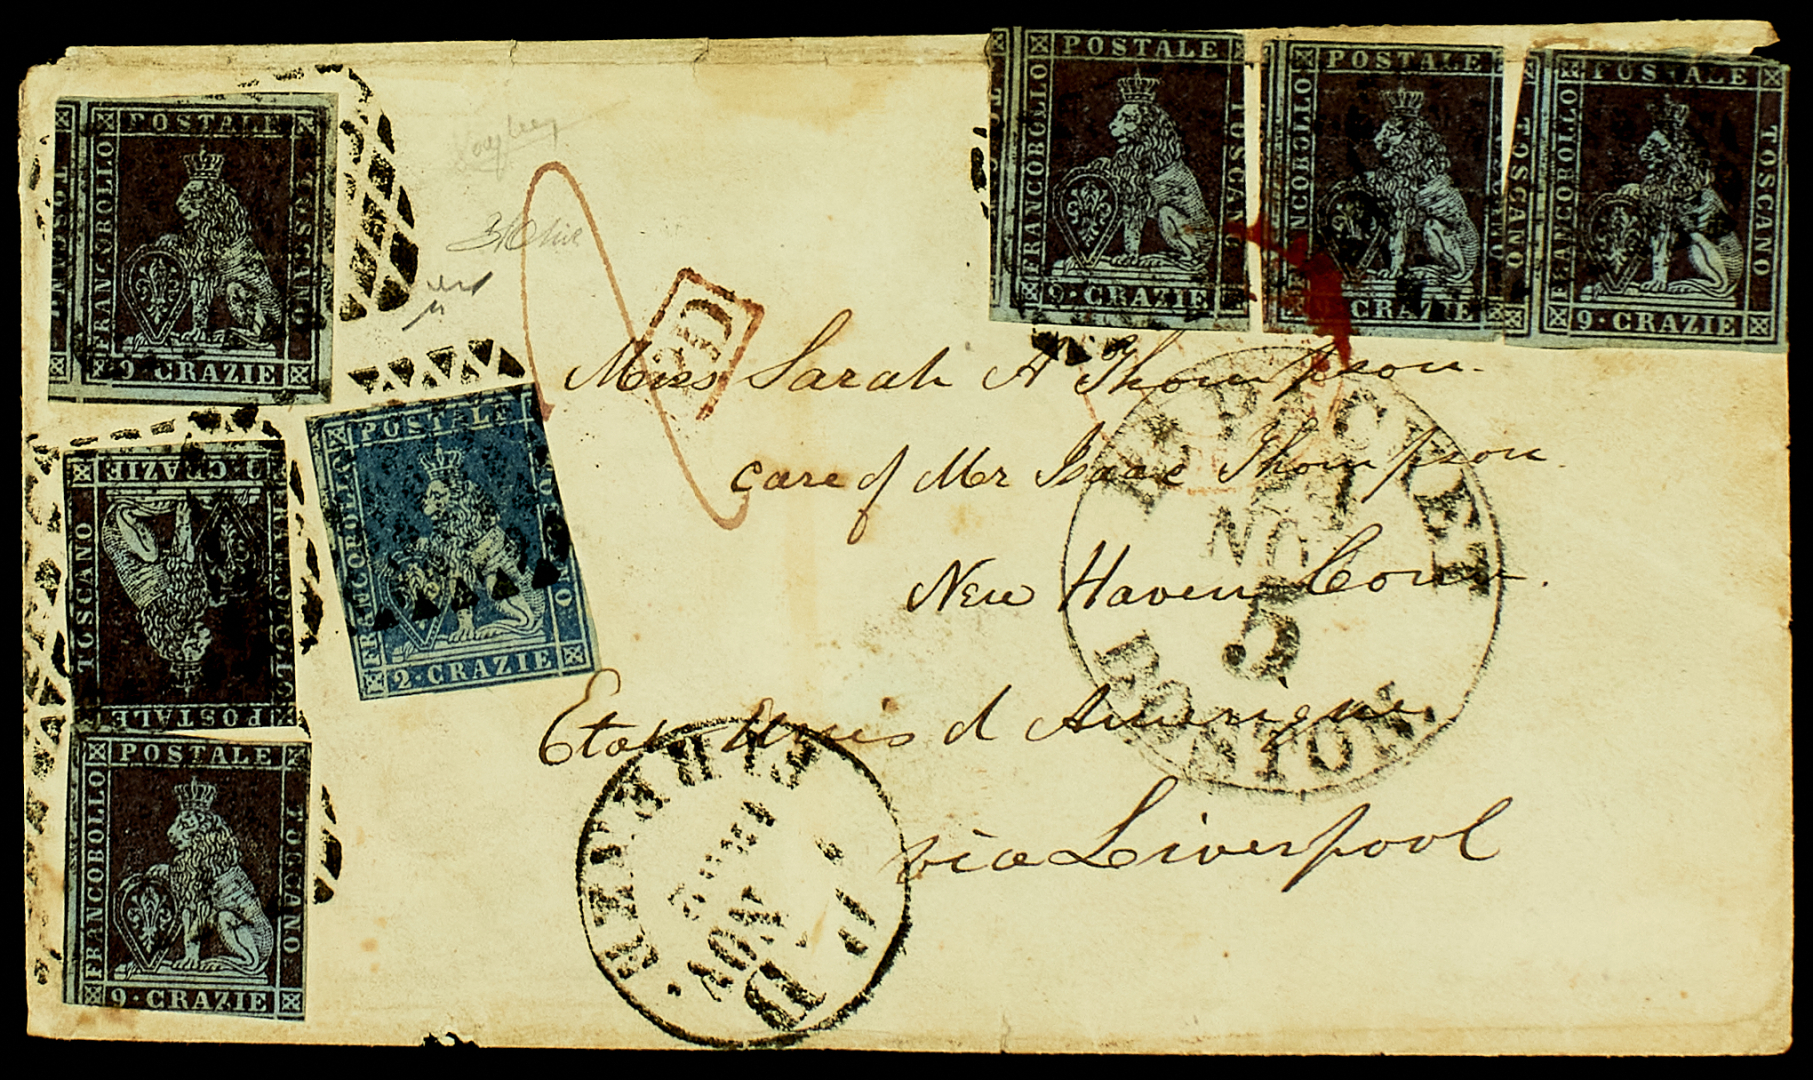 POSTALE
FRANCOBOLLO
TOSCANO
9 · CRAZIE
TOSCANO
POSTALE
FRANCOBOLLO
TOSCANO
9 · CRAZIE
POSTALE
FRANCOBOLLO
TOSCANO
9 · CRAZIE
POSTALE
FRANCOBOLLO
TOSCANO
9 · CRAZIE
POSTALE
FRANCOBOLLO
TOSCANO
9 · CRAZIE
POSTALE
FRANCOBOLLO
TOSCANO
9 · CRAZIE
POSTALE
FRANCOBOLLO
2 · CRAZIE
PD
Miss Sarah A Thompson.
care of Mr Isaac Thompson.
New Haven Conn.
Etats Unis d Amerique
via Liverpool
BR PACKET
NO
5
BOSTON
FIRENZE
NOV.